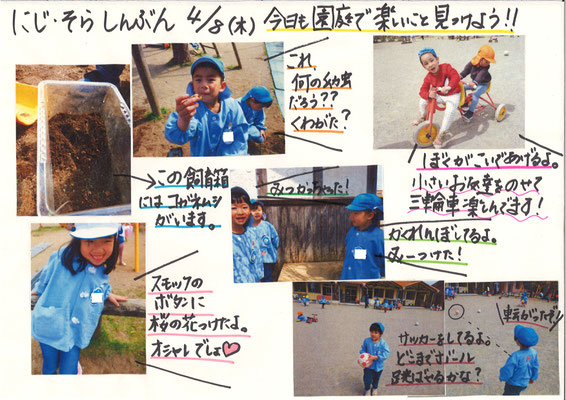 にじ・そら しんぶん 4/8(木) 今日も園庭で楽しいこと見つけよう!!
これ、
何の幼虫
だろう??
くわがた?
ぼくがこいであげるよ。
小さいお友達をのせて
三輪車楽しんでます!
この飼育箱
には コガネムシ
がいます。
みつかっちゃった!
かくれんぼしてるよ。
みーつけた!
スモックの
ボタンに
桜の花つけたよ。
オシャレでしょ♡
サッカーをしてるよ。
どこまでボール
飛ばせるかな?
転がったぞ!